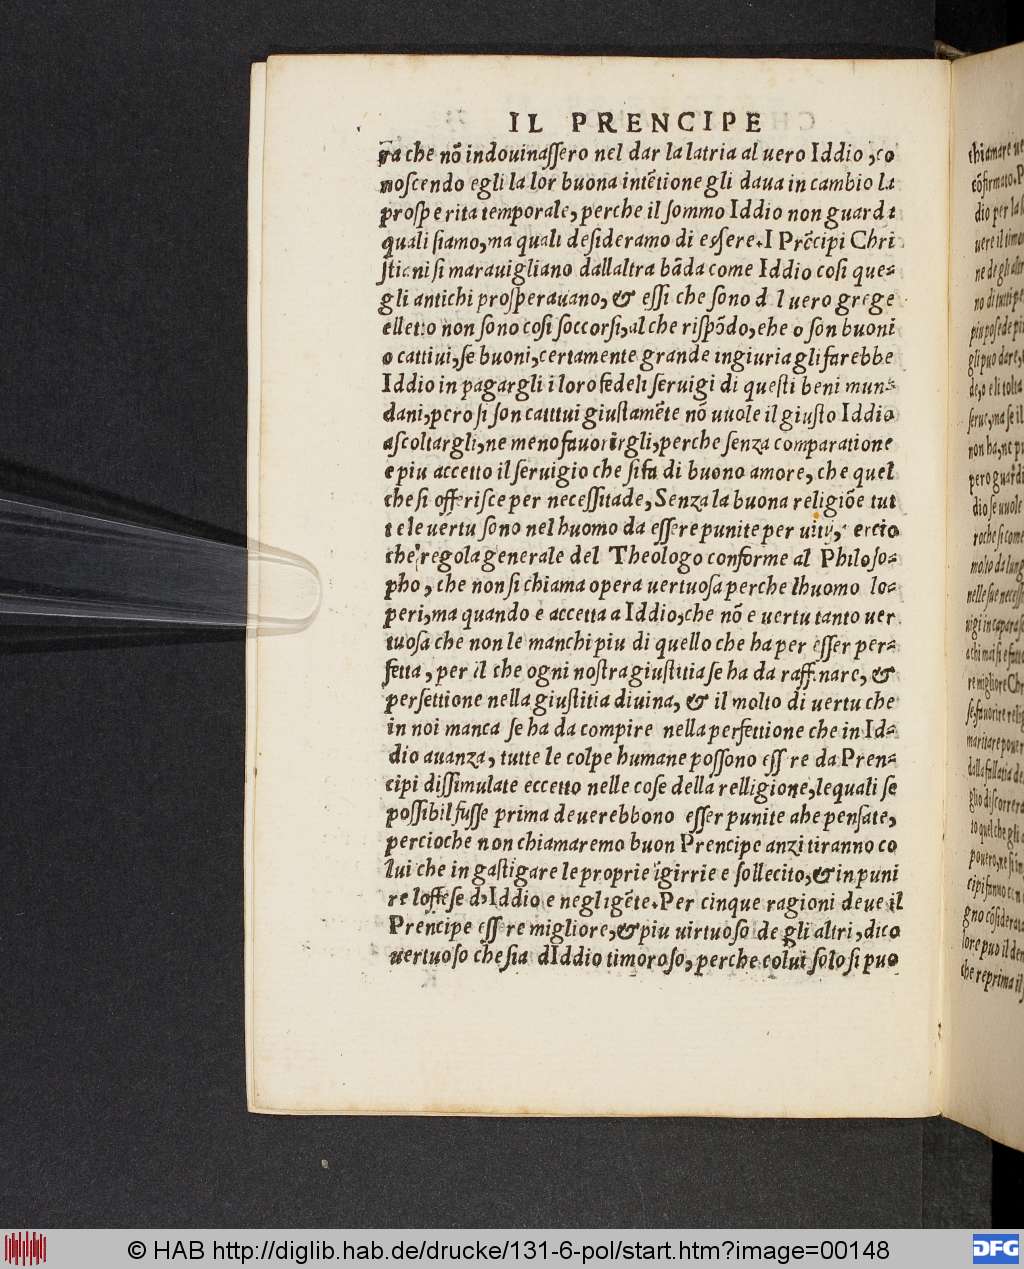 IL PRENCIPE
ra che nō indouinaſſero nel dar la latria al uero Iddio, co
noſcendo egli la lor buona intētione gli daua in cambio la
proſperita temporale, perche il ſommo Iddio non guarda
quali ſiamo, ma quali deſideramo di eſsere. I Prēcipi Chri
ſtiani ſi marauigliano dallaltra bāda come Iddio coſi que-
gli antichi proſperauano, & eſſi che ſono d l uero grege
elletto non ſono coſi ſoccorſi, al che riſpōdo, ehe o ſon buoni
o cattiui, ſe buoni, certamente grande ingiuria gli farebbe
Iddio in pagargli i loro fedeli ſeruigi di queſti beni mun-
dani, pero ſi ſon catttui giuſtamēte nō uuole il giuſto Iddio
aſcoltargli, ne meno fauorirgli, perche ſenza comparatione
e piu accetto il ſeruigio che ſi fa di buono amore, che quel
che ſi offeriſce per neceſſitade, Senza la buona religiōe tut
te le uertu ſono nel huomo da eſſere punite per uitij, ercio
che regola generale del Theologo conforme al Philoſo-
pho, che non ſi chiama opera uertuoſa perche lhuomo lo-
peri, ma quando e accetta a Iddio, che nō e uertu tanto uer
tuoſa che non le manchi piu di quello che ha per eſſer per-
fetta, per il che ogni noſtra giuſtitia ſe ha da raffinare, &
perfettione nella giuſtitia diuina, & il molto di uertu che
in noi manca ſe ha da compire nella perfettione che in Id-
dio auanza, tutte le colpe humane poſſono eſſ re da Pren-
cipi diſſimulate eccetto nelle coſe della relligione, lequali ſe
poſſibil fuſſe prima deuerebbono eſſer punite ahe penſate,
percioche non chiamaremo buon Prencipe anzi tiranno co
lui che in gaſtigare le proprie īgirrie e ſollecito, & in puni
re loffeſe d'Iddio e negligēte. Per cinque ragioni deue il
Prencipe eſſere migliore, & piu uirtuoſo de gli altri, dico
uertuoſo che ſia dIddio timoroſo, perche colui ſolo ſi puo
chiamare ue
cōfirmato. P
dio per la
uere il timo
ne de gli altr
no di tutti
piu poſede pi
gli puo dare,
de, o eli tolta
ſerue, ma ſe il
non ha, ne pu
pero guardi
dio ſe uuole
roche ſi come
molto da lung
nelle ſue neceſſ
a chi mai ſi e fatto
re migliore Chr
ſe, fauorire relig
maritare pouer
dalla fallatia de
glio diſcorrera
to quel che gli
pouero, ne ſi
cipi fanno con
gno cōſiderat
lore puo il den
che reprima il
© HAB http://diglib.hab.de/drucke/131-6-pol/start.htm?image=00148
DFG